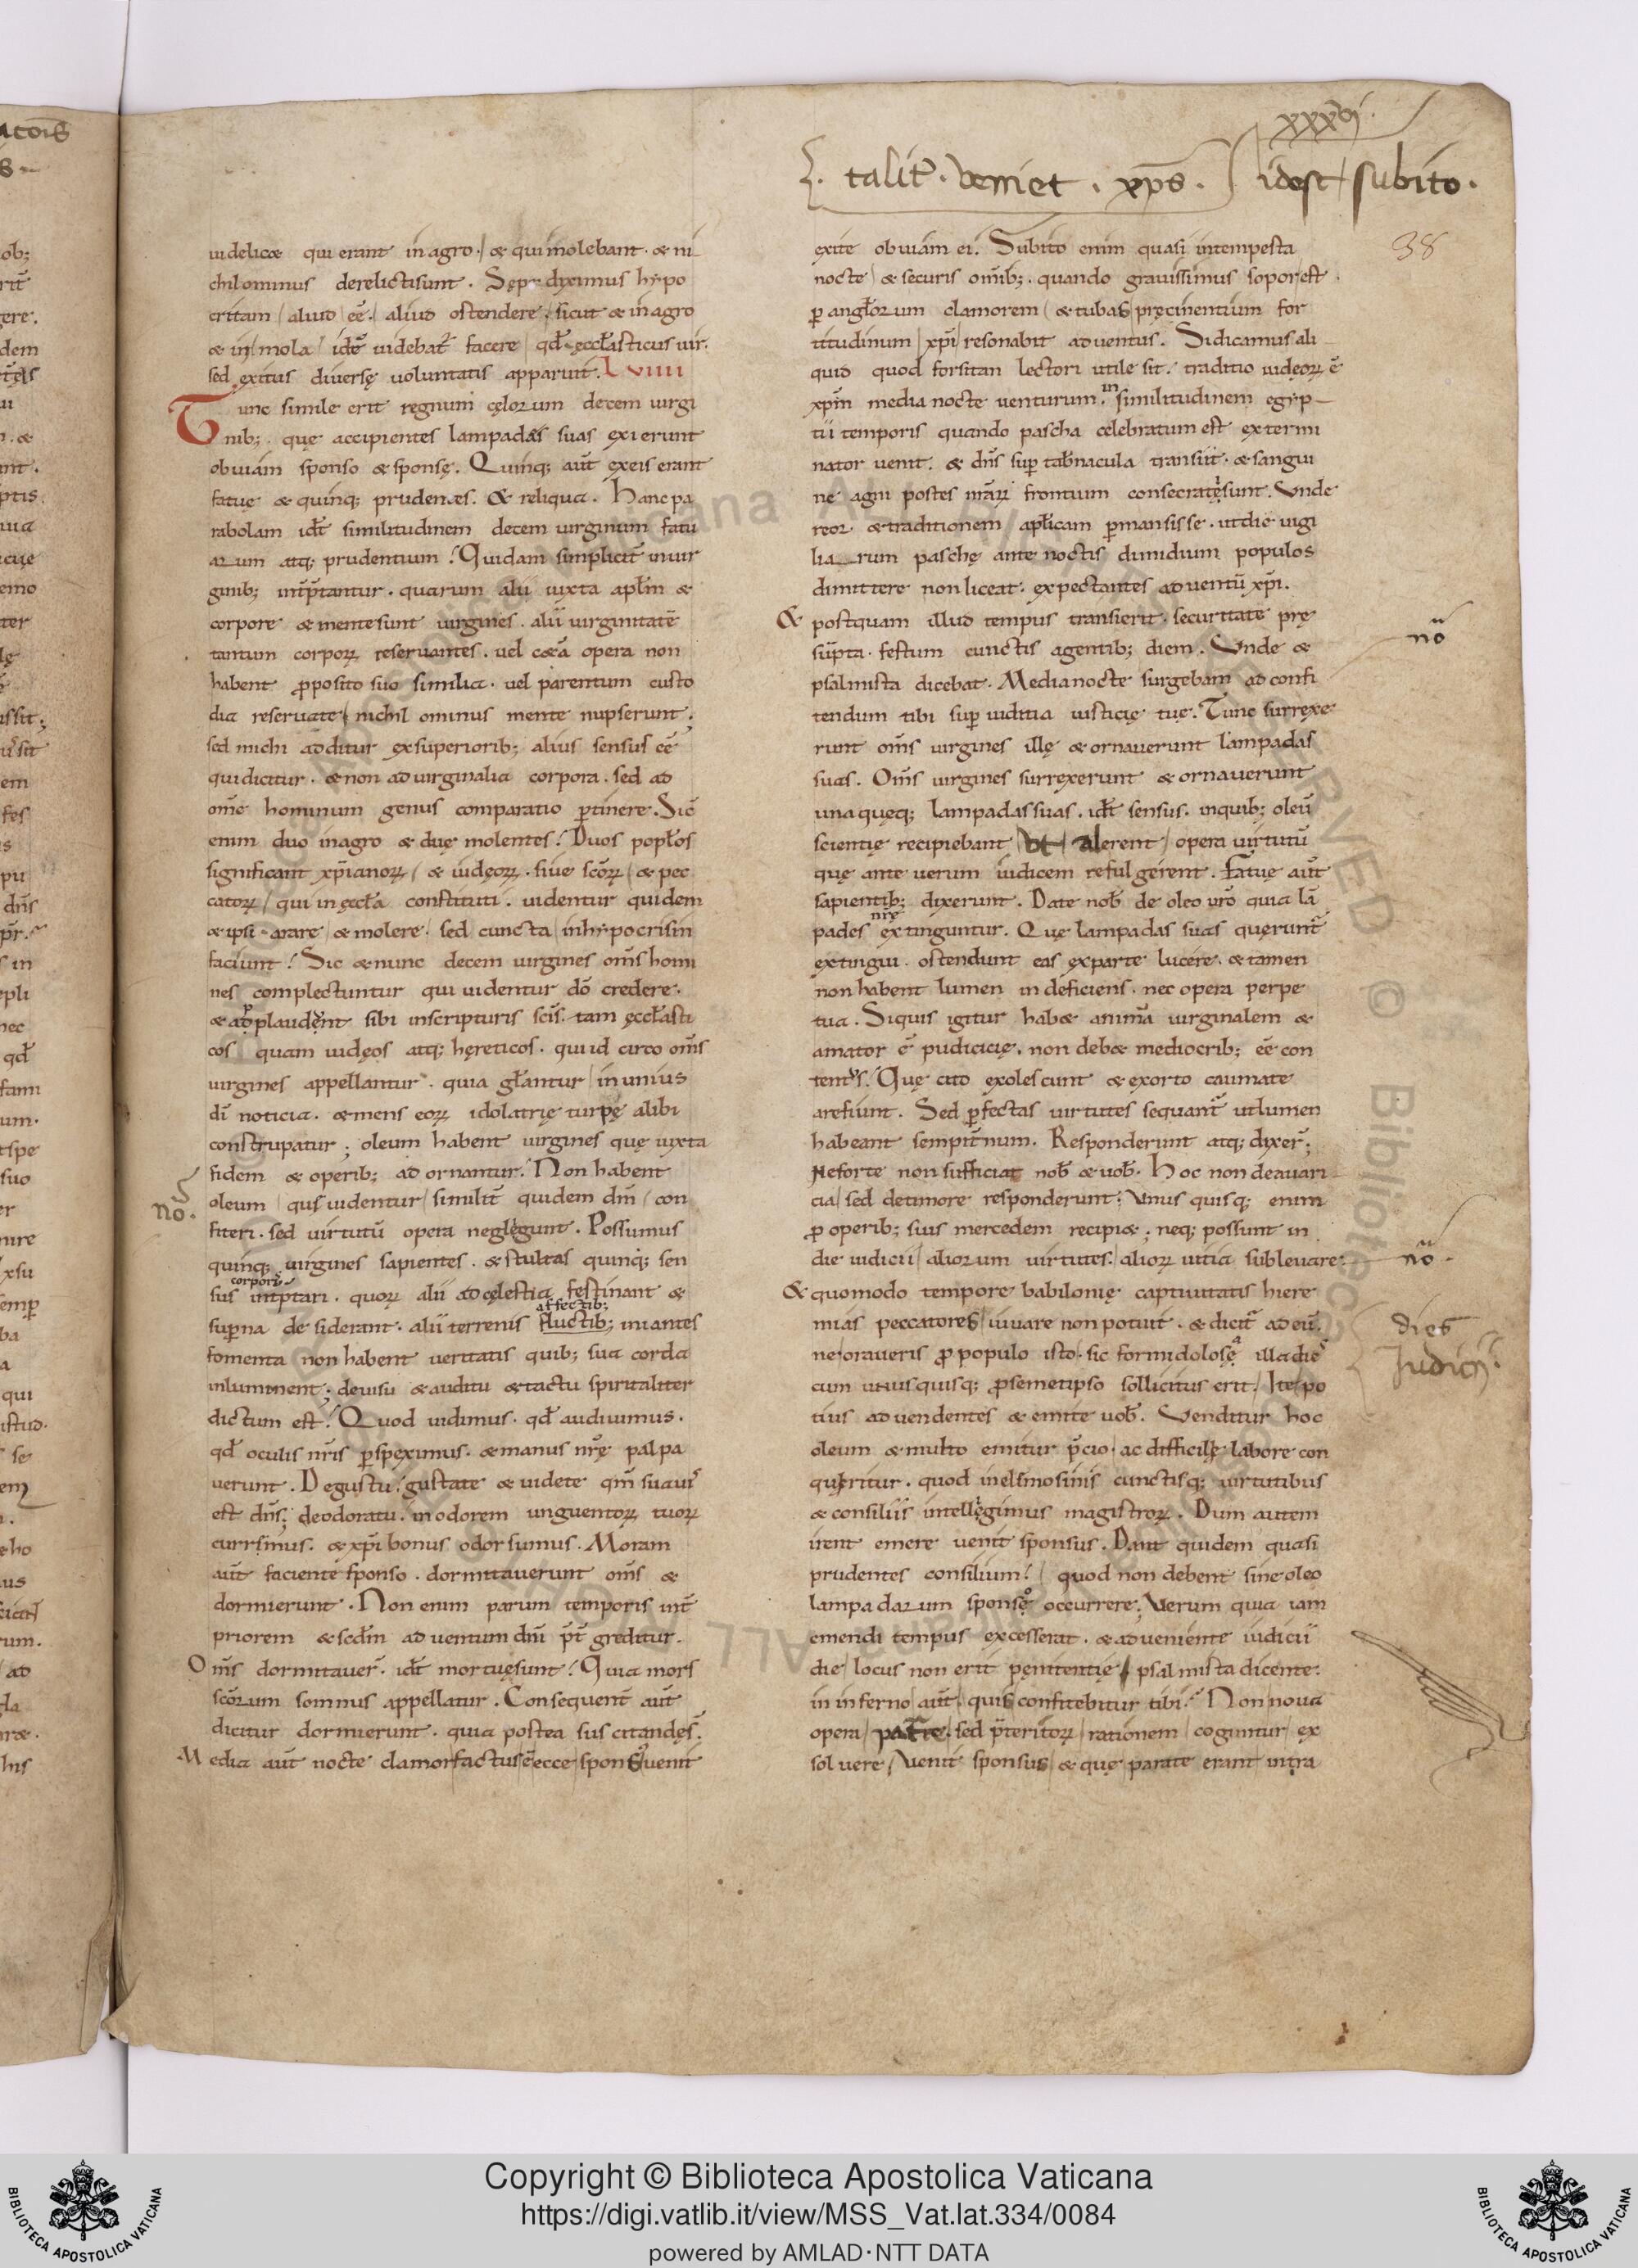 xxxvi.
talit̄. veniet . xp̄s . idest subito .
38
uidelic& qui erant in agro . & qui molebant . & ni
chilominus derelictisunt . Sępe diximus hypo
critam aliud eē . aliud ostendere . sicut & in agro
& in mola idē uidebat̄ facere qd̄ ęccl̄asticus uir .
sed exitus diversę uoluntatis apparuit . LVIIII
Tunc simile erit regnum cęlorum decem uirgi
nib; . quę accipientes lampadas suas exierunt
obuiam sponso & sponsę . Quinq; aut̄ exeis erant
fatuę & quinq; prudentes . & reliqua . Hanc pa
rabolam idt̄ similitudinem decem uirginum fatu
arum atq; prudentium ! Quidam simplicit̄ inuir
ginib; int̄p̄tantur . quarum alii iuxta apl̄m &
corpore & mentesunt uirgines . alii uirginitatē
tantum corporꝝ reseruantes . uel c&ā opera non
habent ꝓposito suo similia . uel parentum custo
dia reseruate nichil ominus mente nupserunt .
sed michi additur exsuperiorib; alius sensus eē
quidicitur . & non ad uirginalia corpora . sed ad
om̄e hominum genus comparatio ꝑtinere . Sic
enim duo inagro & duę molentes ! Duos popl̄os
significant xp̄ianorꝝ & iudęorꝝ . siue sc̄orꝝ & pec
catorꝝ qui in ęccl̄a constituti . uidentur quidem
& ipsi arare & molere . sed cuncta inhypocrisin
faciunt ! Sic & nunc decem uirgines om̄s homi
nes complectuntur qui uidentur dō credere .
& applaudent sibi inscripturis sc̄is . tam ęccl̄asti
cos quam iudęos atq; hęreticos . qui id circo om̄s
uirgines appellantur . quia gl̄antur in unius
dī noticia . & mens eorꝝ idolatrię turpe alibi
construpatur ; oleum habent uirgines quę iuxta
fidem & operib; ad ornantur . Non habent
nō .
oleum qui uidentur similit̄ quidem dn̄m con
fiteri . sed uirtutū opera neglegunt . Possumus
quinq; uirgines sapientes . & stultas quinq; sen
corporis
sus int̄p̄tari . quorꝝ alii ad cęlestia festinant &
affectib;
supna desiderant . alii terrenis fluctib; iniantes
fomenta non habent ueritatis quib; sua corda
inluminent ; deuisu & auditu & tactu spiritaliter
dictum est ! Quod uidimus . qd̄ audiuimus .
qd̄ oculis nr̄is ꝑspeximus . & manus nr̄ę palpa
uerunt . Degustu ! gustate & uidete qm̄ suauis
est dn̄s ; deodoratu . in odorem unguentorꝝ tuorꝝ
currimus . & xp̄i bonus odor sumus . Moram
aut̄ faciente sponso . dormitauerunt om̄s &
dormierunt . Non enim parum temporis int̄
priorem & sec̄dm aduentum dn̄i p̄t greditur .
Om̄s dormitauer̄ . idt̄ mortuęsunt ! Quia mors
sc̄orum somnus appellatur . Consequent̄ aut̄
dicitur dormierunt . quia postea suscitandęs̄ .
Media aut̄ nocte clamor factus ē ecce sponsus uenit
exite obuiam ei . Subito enim quasi intempesta
nocte & securis om̄ib; . quando grauissimus sopor est .
ꝑ angl̄orum clamorem & tubas pręcinentium for
titudinum xp̄i resonabit aduentus . Sidicamus ali
quid quod forsitan lectori utile sit . traditio iudęorꝝ ē
in
xp̄m media nocte uenturum . similitudinem egyp
tii temporis quando pascha celebratum est extermi
nator uenit . & dn̄s sup tab̄nacula transiit . & sangui
ne agni postes nr̄arꝝ frontium consecratęsunt . Unde
reor & traditionem apl̄icam ꝑmansisse . utdie uigi
liarum paschę ante noctis dimidium populos
dimittere non liceat . expectantes aduentū xp̄i .
& postquam illud tempus transierit . securitate prę
nō
sūpta . festum cunctis agentib; diem . Unde &
psalmista dicebat . Media nocte surgebam ad confi
tendum tibi sup iuditia iusticię tuę . Tunc surrexe
runt om̄s uirgines illę & ornauerunt lampadas
suas . Om̄s uirgines surrexerunt & ornauerunt
unaquęq; lampadas suas . idt̄ sensus . inquib; oleū
scientię recipiebant ut alerent opera uirtutū
quę ante uerum iudicem refulgerent . Fatuę aut̄
sapientib; dixerunt . Date nob̄ de oleo uro quia lā
nr̄ę
pades extinguntur . Quę lampadas suas querunt̄
extingui . ostendunt eas exparte lucere . & tamen
non habent lumen indeficiens . nec opera perpe
tua . Siquis igitur hab& animā uirginalem &
amator ē pudicicię . non deb& mediocrib; eē con
tentus . Quę cito exolescunt & exorto caumate
arefiunt . Sed ꝑfectas uirtutes sequant̄ utlumen
habeant sempit̄num . Responderunt atq; dixer̄ ;
Neforte non sufficiat nob̄ & uob̄ . Hoc non deauari
cia sed detimore responderunt . Unus quisq; enim
ꝓ operib; suis mercedem recipi& ; neq; possunt in
die iudicii aliorum uirtutes . aliorꝝ uitia subleuare .
nō .
& quomodo tempore babilonię captiuitatis hiere
mias peccatores iuuare non potuit . & dicit̄ ad eū .
dies
Judicii .
ne oraueris ꝓ populo isto . sic formidolosę illa die
cum unusquisq; ꝓsemetipso sollicitus erit . Ite po
tius aduendentes & emite uob̄ . Venditur hoc
oleum & multo emitur p̄cio . ac difficile labore con
queritur . quod inelimosinis cunctisq; uirtutibus
& consiliis intellegimus magistrorꝝ . Dum autem
irent emere uenit sponsus . Dant quidem quasi
prudentes consilium ! quod non debent sine oleo
lampadarum sponso occurrere . Verum quia iam
emendi tempus excesserat . & adueniente iudicii
die locus non erit pęnitentię psalmista dicente .
in inferno aut̄ quis confitebitur tibi . Non noua
opera patre . sed p̄teritorꝝ rationem coguntur ex
soluere . Venit sponsus & quę parate erant intra
Copyright © Biblioteca Apostolica Vaticana
https://digi.vatlib.it/view/MSS_Vat.lat.334/0084
powered by AMLAD·NTT DATA
BIBLIOTECA APOSTOLICA VATICANA
BIBLIOTECA APOSTOLICA VATICANA